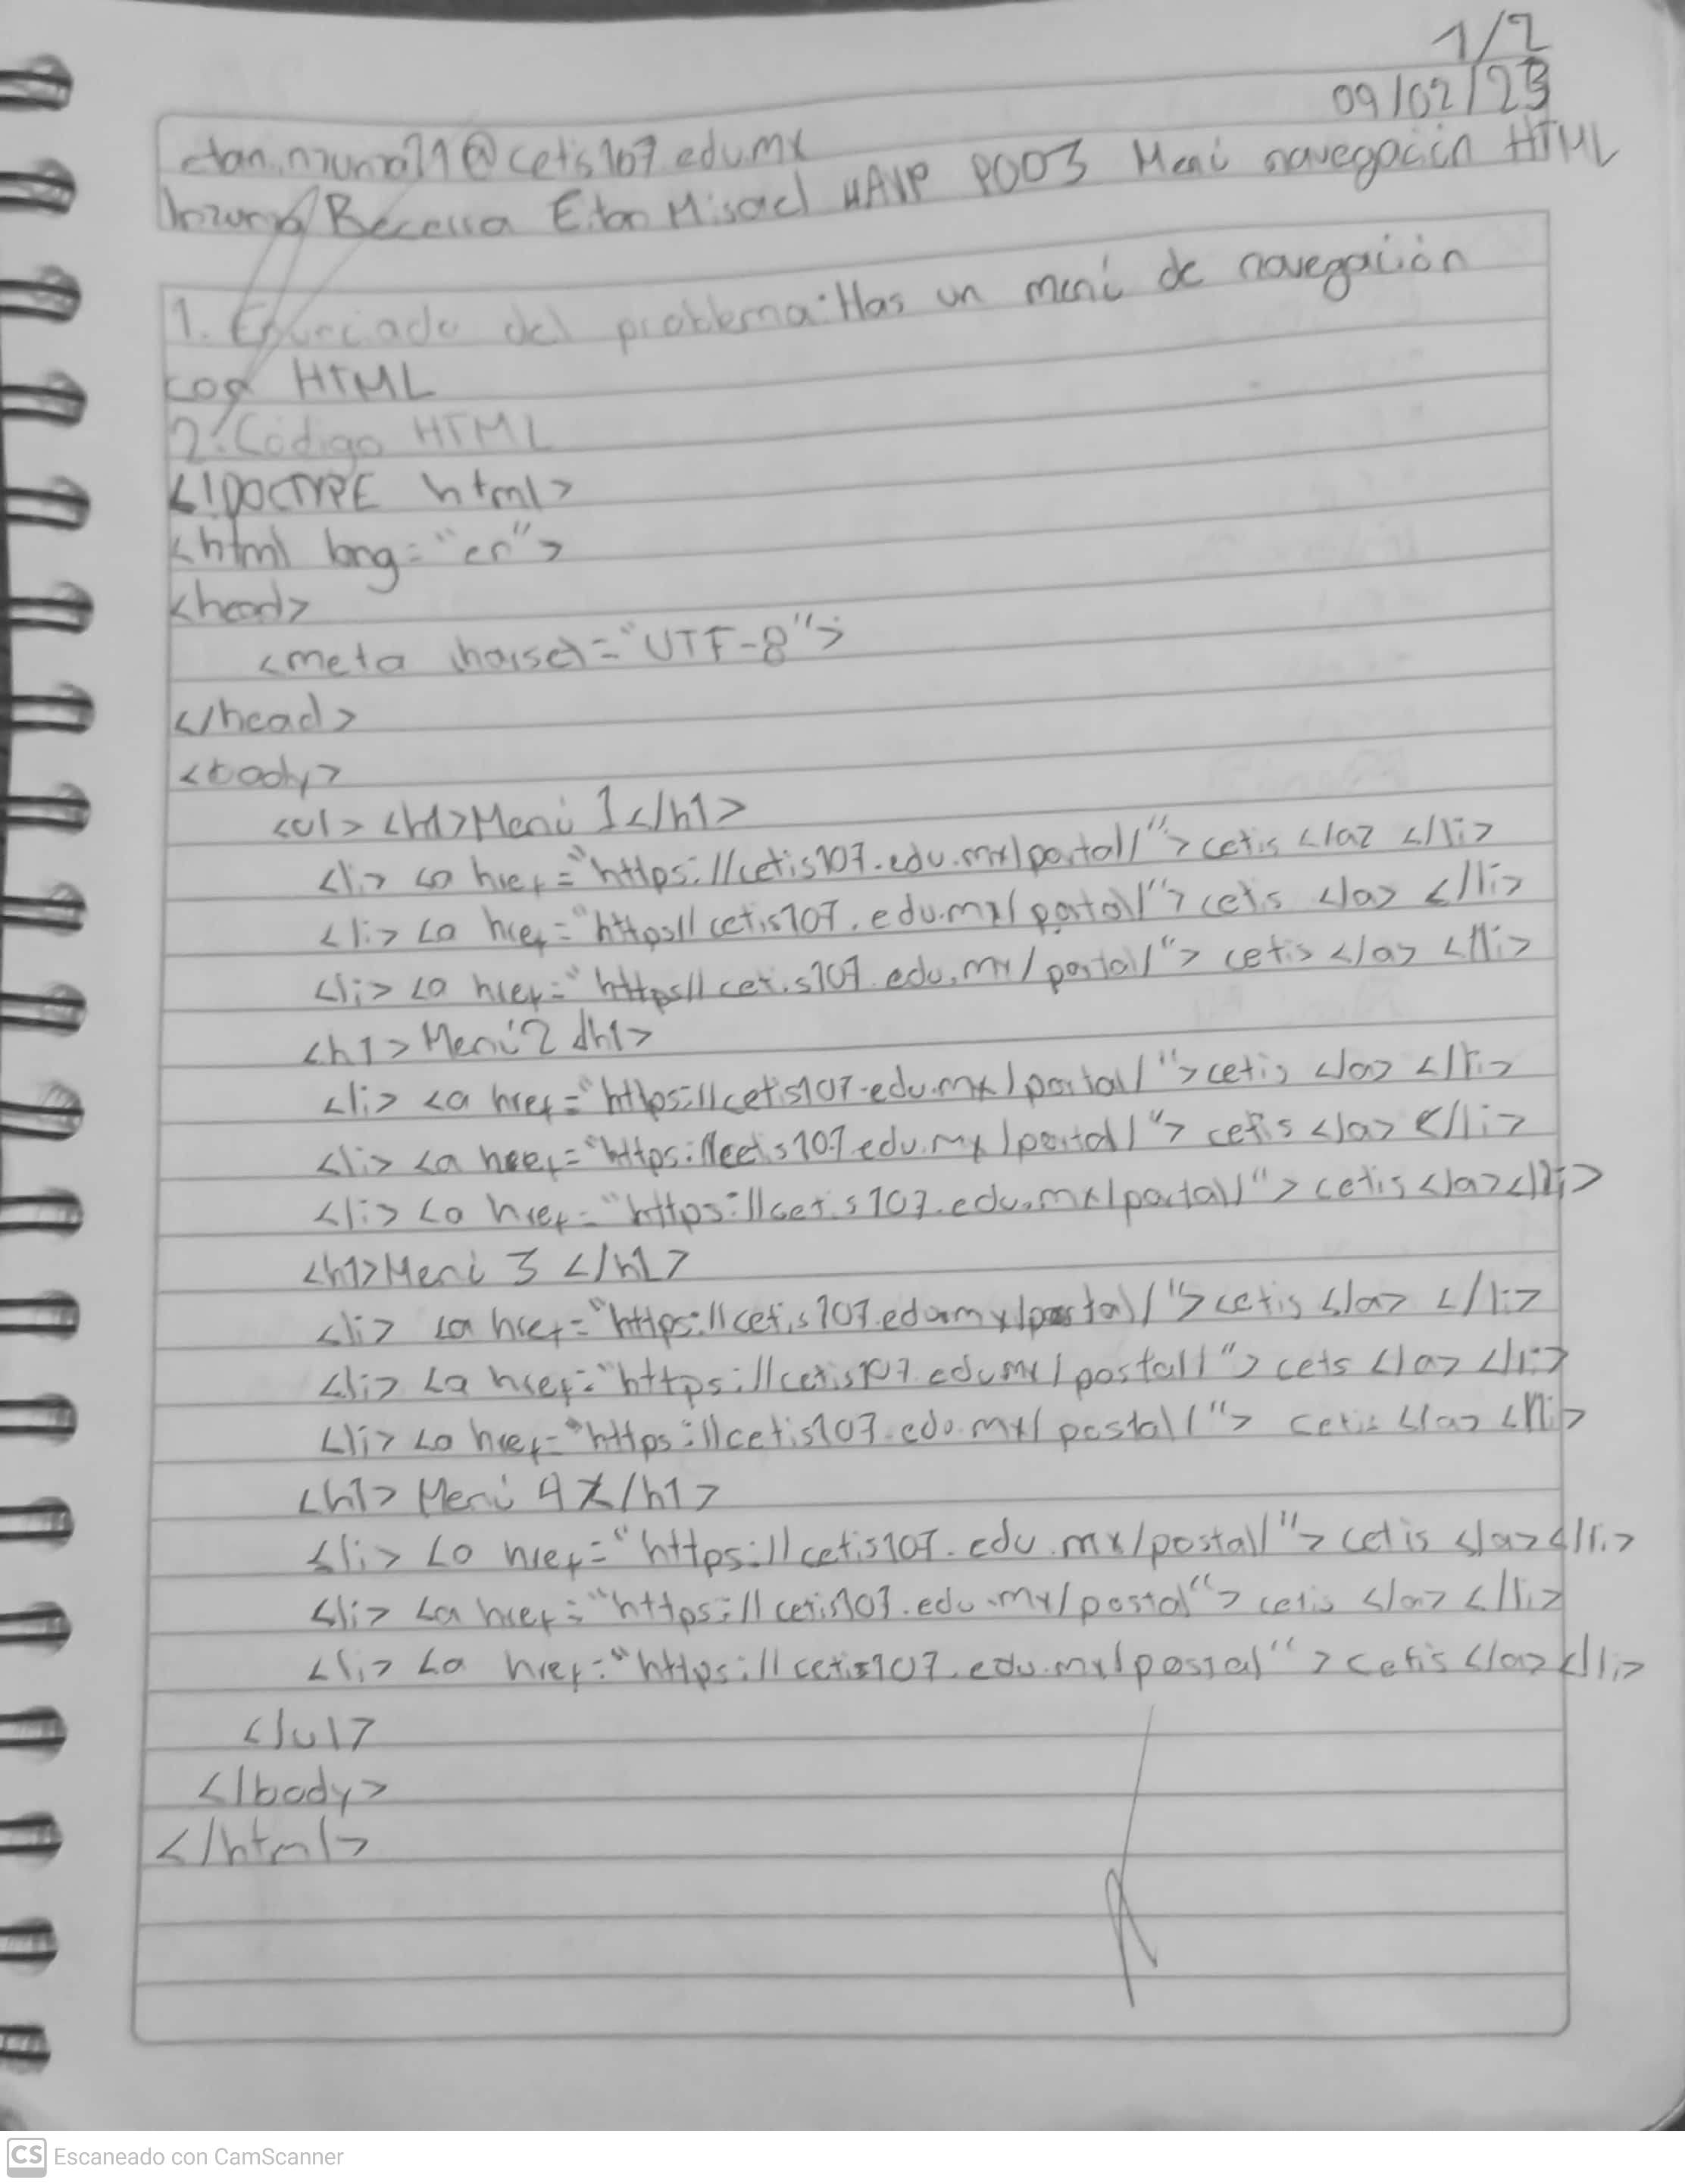 1/2
09/02/23
etan.inzunza21@cetis107.edu.mx
Inzunza Becerra Etan Misael 4AVP P003 Menú navegación HTML
1. Enunciado del problema: Has un menú de navegación
con HTML
2. Código HTML
<!DOCTYPE html>
<html lang="en">
<head>
<meta charset="UTF-8">
</head>
<body>
<ul> <h1>Menú 1</h1>
<li> <a href="https://cetis107.edu.mx/portal/">cetis </a> </li>
<li> <a href="https//cetis107.edu.mx/portal/">cetis </a> </li>
<li> <a href="https//cetis107.edu.mx/portal/"> cetis </a> </li>
<h1>Menú 2 </h1>
<li> <a href="https://cetis107.edu.mx/portal/">cetis </a> </li>
<li> <a href="https://cetis107.edu.mx/portal/"> cetis </a> </li>
<li> <a href="https://cetis107.edu.mx/portal/"> cetis </a></li>
<h1>Menú 3 </h1>
<li> <a href="https://cetis107.edu.mx/portal/">cetis </a> </li>
<li> <a href="https://cetis107.edu.mx/portal/"> cets </a> </li>
<li> <a href="https://cetis107.edu.mx/portal/"> cetis </a> </li>
<h1> Menú 4 </h1>
<li> <a href="https://cetis107.edu.mx/portal/"> cetis </a></li>
<li> <a href="https://cetis107.edu.mx/portal"> cetis </a> </li>
<li> <a href="https://cetis107.edu.mx/portal"> cetis </a></li>
</ul>
</body>
</html>
CS Escaneado con CamScanner